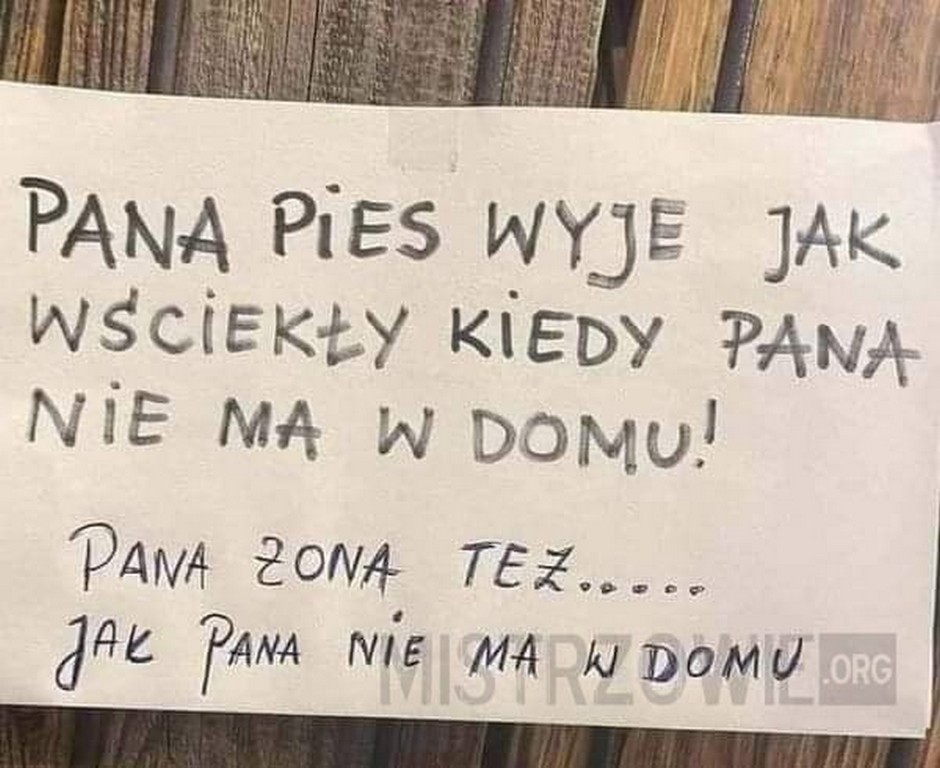 PANA PiES WYJE JAK
WŚCiEKŁY KiEDY PANA
NiE MA W DOMU!
PANA ŻONA TEŻ.....
JAK PANA NiE MA W DOMU
MISTRZOWIE.ORG